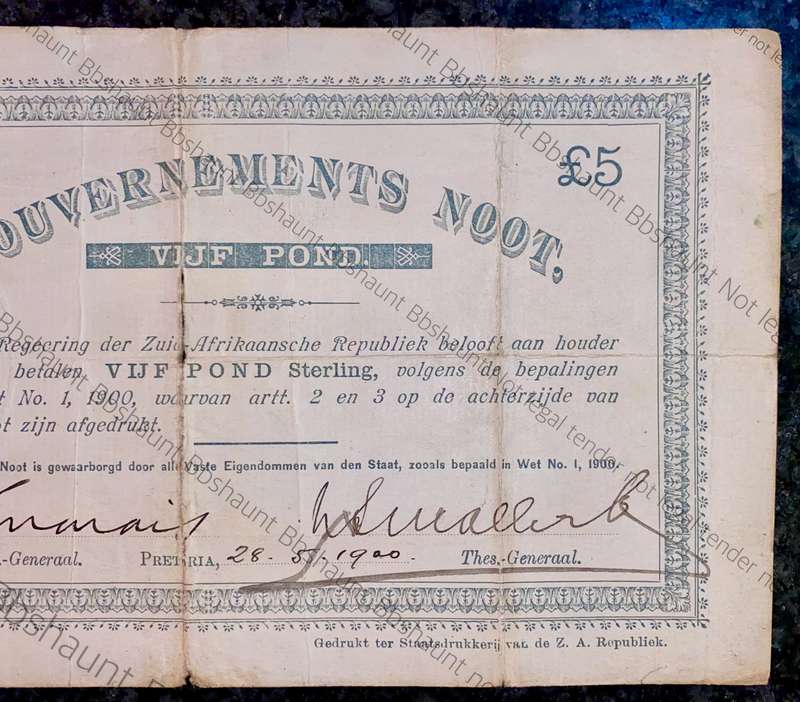 OUVERNEMENTS NOOT,
£5
VIJF POND.
Regeering der Zuid-Afrikaansche Republiek belooft aan houder
betalen VIJF POND Sterling, volgens de bepalingen
No. 1, 1900, waarvan artt. 2 en 3 op de achterzijde van
zijn afgedrukt.
Noot is gewaarborgd door alle Vaste Eigendommen van den Staat, zooals bepaald in Wet No. 1, 1900.
-Generaal. PRETORIA, 28 - 5 - 1900. Thes.-Generaal.
Gedrukt ter Staatsdrukkerij van de Z. A. Republiek.
Bbshaunt Bbshaunt Bbshaunt Not legal tender not legal tender